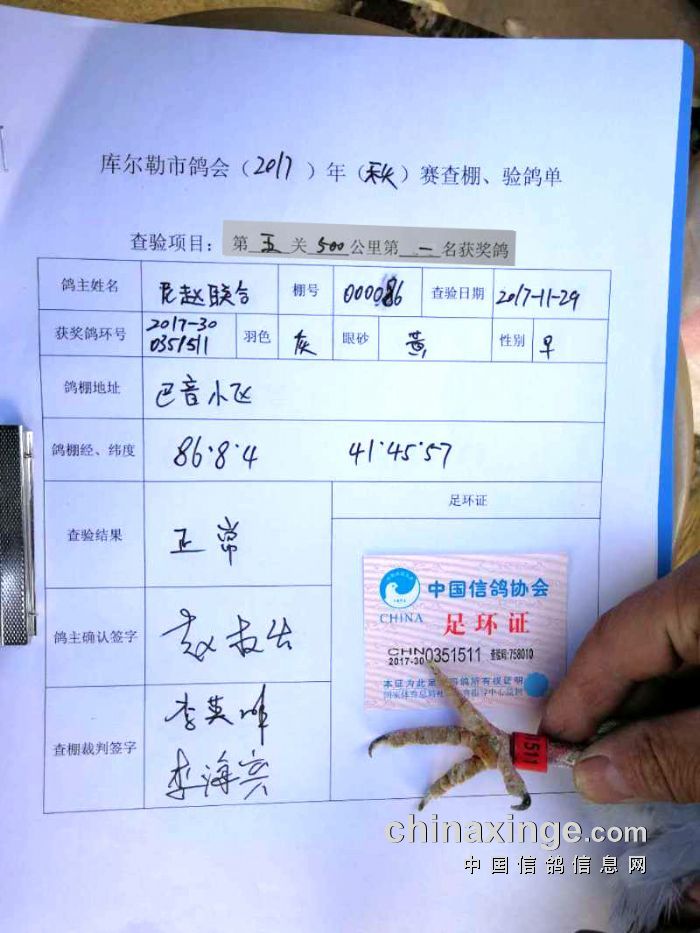 库尔勒市鸽会（2017）年（秋）赛查棚、验鸽单
查验项目：第 五 关 500 公里第 一 名获奖鸽
鸽主姓名 赵联合 棚号 000086 查验日期 2017-11-29
获奖鸽环号 2017-30 0351511 羽色 灰 眼砂 黄 性别
鸽棚地址 巴音小区
鸽棚经、纬度 86·8·4 41·45·57
查验结果 正常 足环证
中国信鸽协会
CHINA 足环证
CHN 2017-30 0351511 查验码:758010
本证为此足 鸽所有权证明
鸽主确认签字
查棚裁判签字 李英
李海宾
1511
chinaxinge.com
中国信鸽信息网